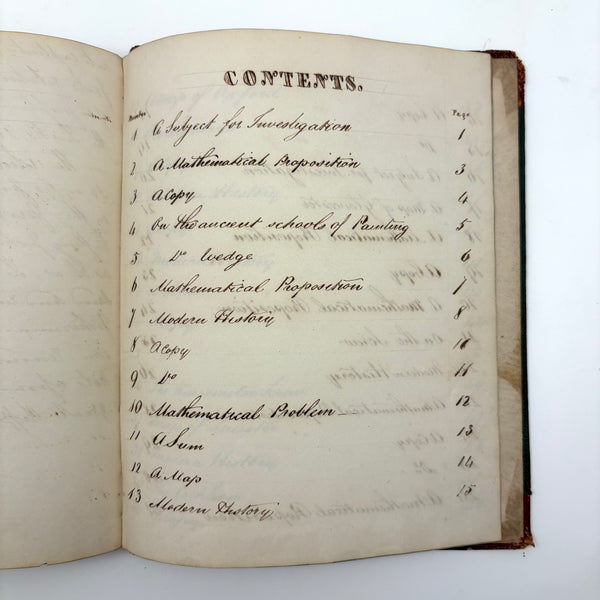 CONTENTS.
Number Page
1 A Subject for Investigation 1
2 A Mathematical Proposition 3
3 A Copy 4
4 On the ancient schools of Painting 5
5 Do Wedge 6
6 Mathematical Proposition 7
7 Modern History 8
8 A Copy 10
9 Do 11
10 Mathematical Problem 12
11 A Sum 13
12 A Map 14
13 Modern History 15